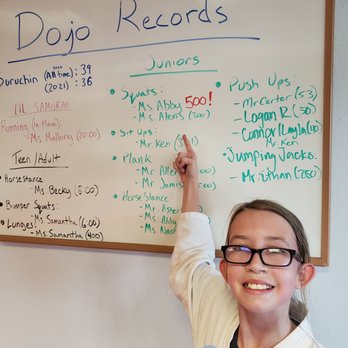 Dojo Records
Buruchin (All time): 39
(2021): 36
Lil SAMURAI
Running (in Place):
- Ms. Mallory (20:00)
Teen/Adult
Horse Stance:
- Ms. Becky (5:00)
Bumper Squats:
- Ms. Samantha (600)
Lunges:
- Ms. Samantha (400)
Juniors
Squats:
- Ms. Abby 500!
- Ms. Alexis (300)
Sit ups:
- Mr. Ken
Plank
- Mr.
- Mr.
Horse Stance:
- Mr. Asher
- Ms. Abby
- Ms.
Push Ups:
- Mr Carter (53)
- Logan R (50)
- Connor/Layla (40)
Mr. Ken
Jumping Jacks:
- Mr. Ethan (250)